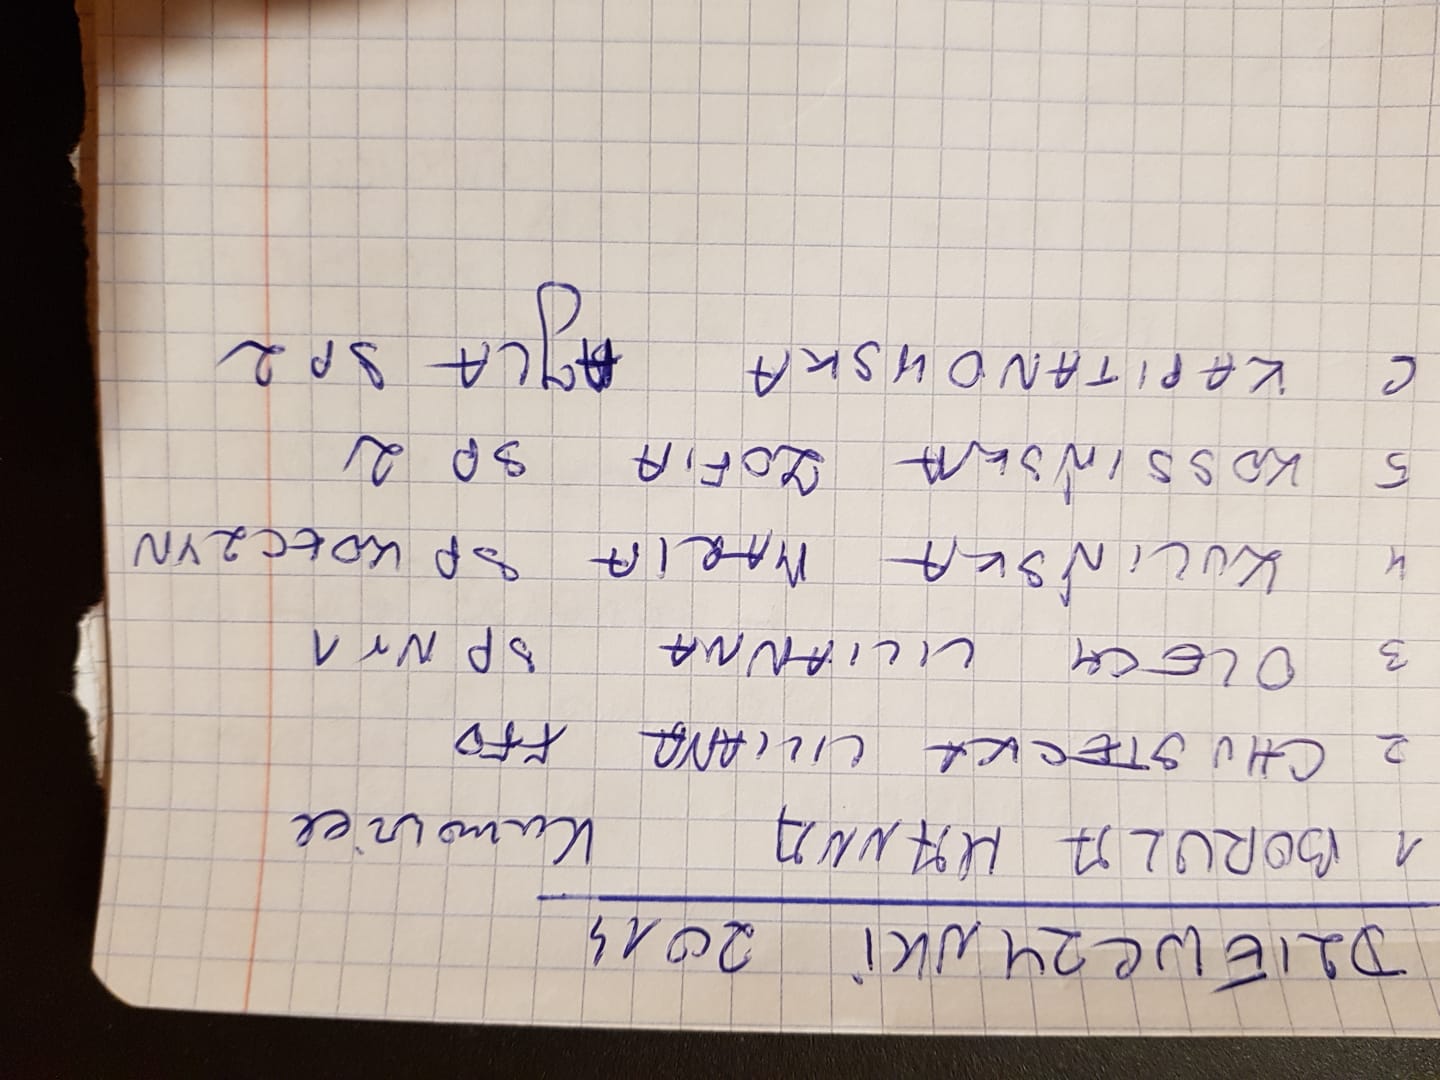 DZIEWCZYNKI 2014
1 BORULA HANNA Kunowice
2 CHUSTECKA LILIANA FFO
3 OLECH LILIANNA SP Nr 1
4 KULIŃSKA MARIA SP KOECZYN
5 KOSSIŃSKA ZOFIA SP 2
6 KAPITANOWSKA SP 2